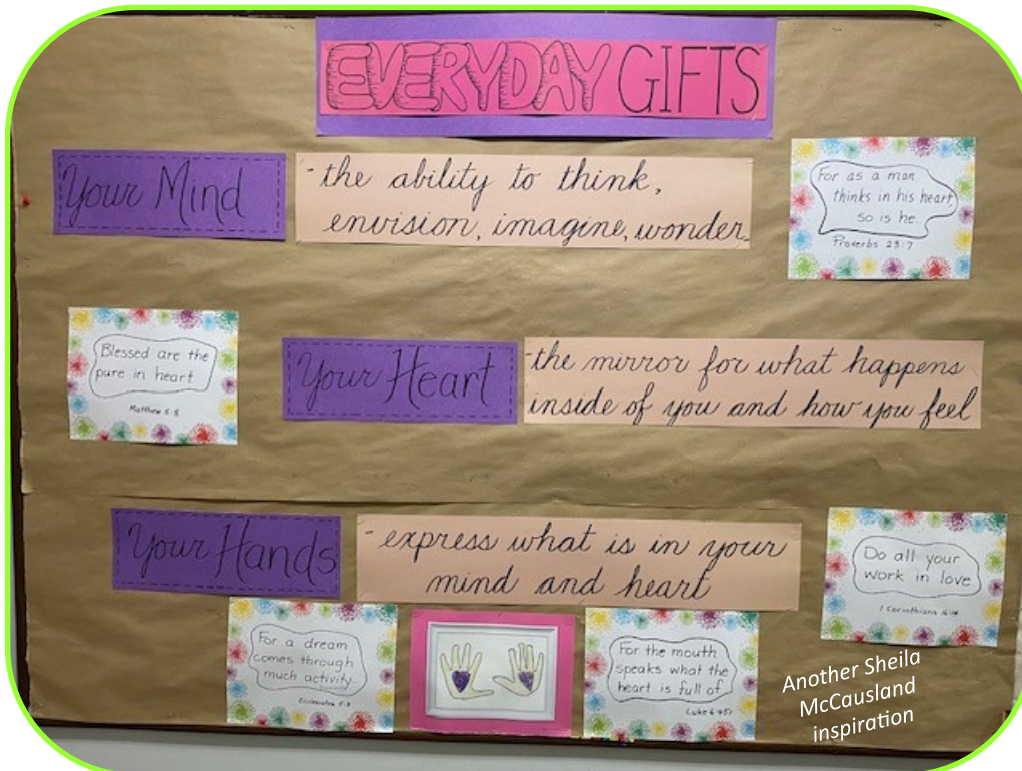 EVERYDAY GIFTS
Your Mind
- the ability to think,
envision, imagine, wonder
For as a man
thinks in his heart,
so is he.
Proverbs 23:7
Blessed are the
pure in heart
Matthew 5:8
Your Heart
- the mirror for what happens
inside of you and how you feel
Your Hands
- express what is in your
mind and heart
Do all your
work in love
1 Corinthians 16:14
For a dream
comes through
much activity
Ecclesiastes 5:3
For the mouth
speaks what the
heart is full of
Luke 6:45
Another Sheila
McCausland
inspiration